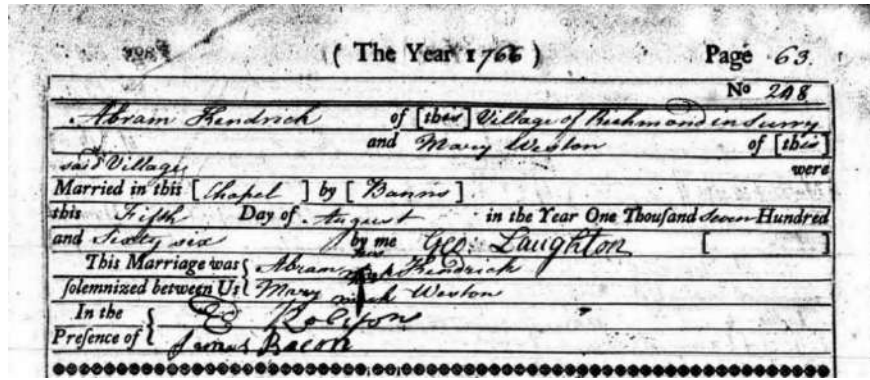 ( The Year 1766 ) Page 63.
No 248
Abram Kendrick of [this] Village of Richmond in Surry
and Mary Weston of [this]
said Village were
Married in this [ Chapel ] by [ Banns ]
this Fifth Day of August in the Year One Thousand Seven Hundred
and Sixty six by me Geo: Laughton [ ]
This Marriage was { Abram Kendrick
solemnized between Us { Mary mark Weston
In the {
Presence of { James Bacon